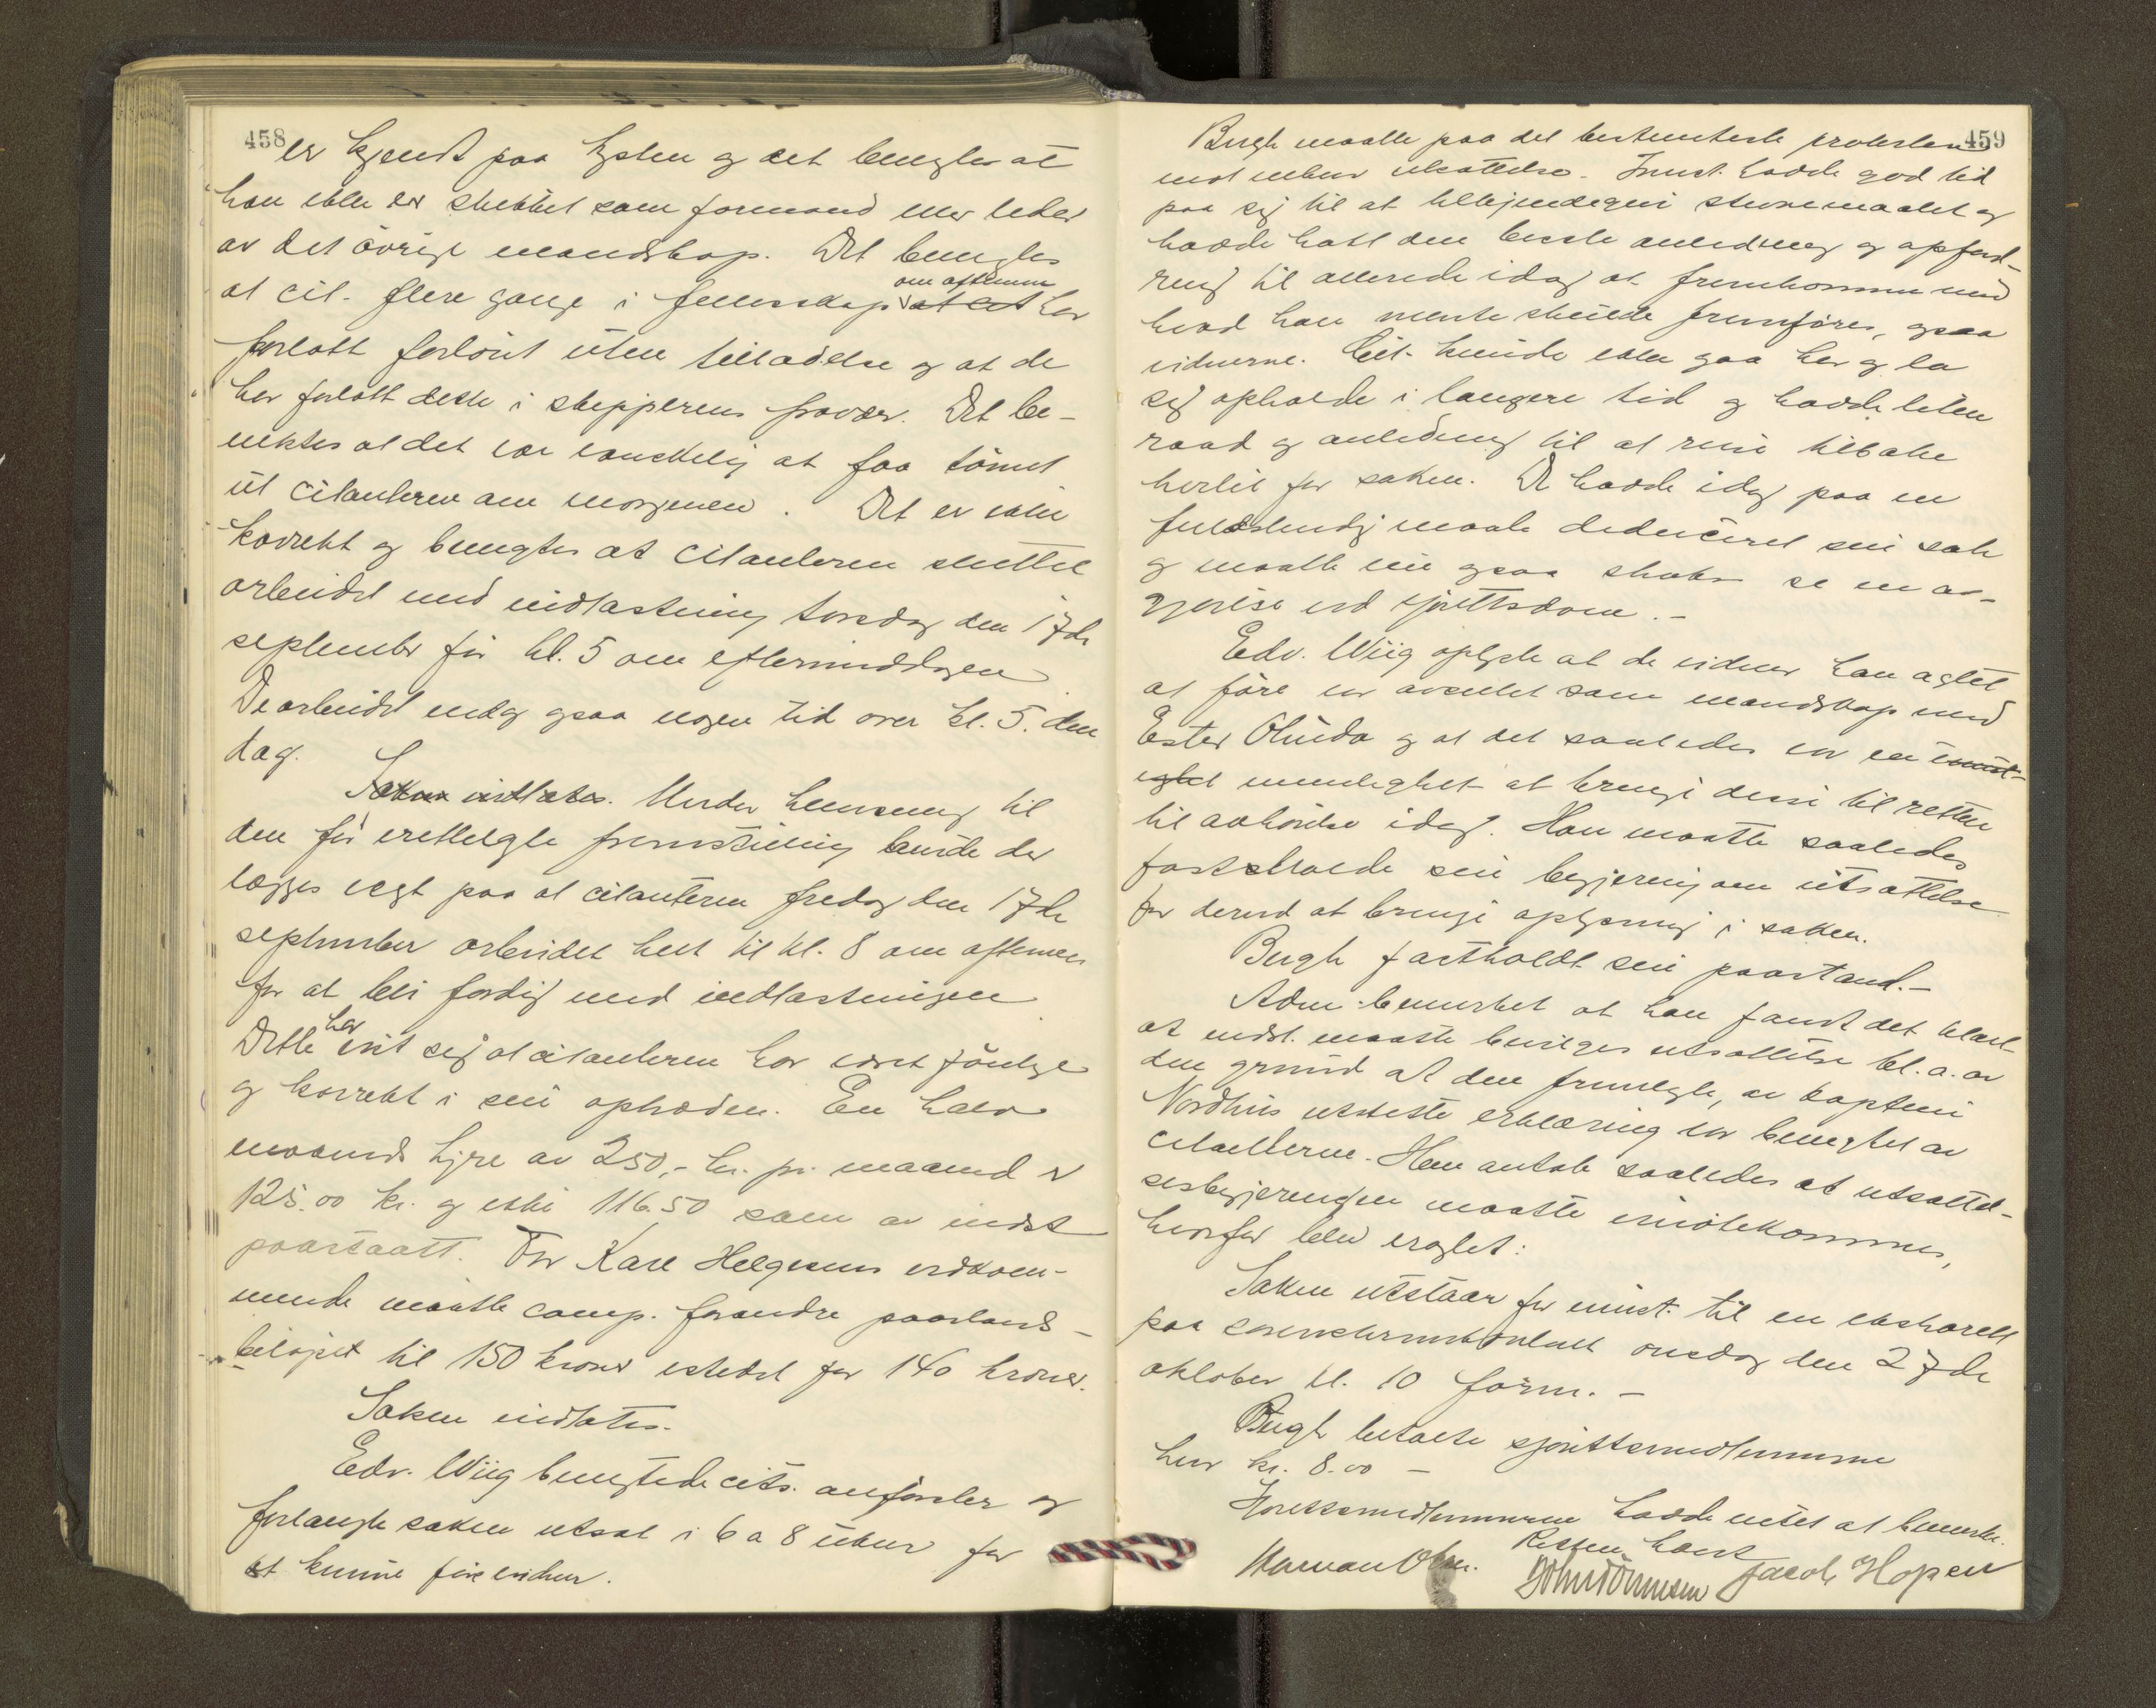 458
er kjendt paa kysten og det benegtes at
han ikke er skikket som formand eller leder
av det övrige mandskap. Det benegtes
at cit. flere gange i fellesskap om aftenen har
forlatt fartöiet uten tilladelse og at de
har forlatt dette i skipperens fravær. Det be-
nektes at det var vanskelig at faa tömt
ut citanterne om morgenen. Det er ikke
korrekt og benegtes at citanterne sluttet
arbeidet med indlastning torsdag den 17de
september för kl. 5 om eftermiddagen.
De arbeidet endog ogsaa nogen tid over kl. 5. den
dag.
Saken indlates. Under henvisning til
den för irettelagte fremstilling burde der
lægges vegt paa at citanterne fredag den 17de
september arbeidet helt til kl. 8 om aftenen
for at bli ferdig med indlastningen
Dette har vist sig at citanterne har været föielige
og korrekt i sin optræden. En halv
maaneds hyre av 250,- kr. pr. maaned er
125.00 kr. og ikke 116.50 som av indst
paastaatt. For Karl Helgesens vedkom-
mende maatte comp. forandre paastands-
belöpet til 150 kroner istedet for 140 kroner.
Saken indlates.
Edv. Wiig benegtede cits. anförsler og
forlangte saken utsat i 6 a 8 uker for
at kunne före vidner.
459
Bugh maatte paa det bestemteste protestere
mot enhver utsættelse. Innst. hadde god tid
paa sig til at tilkjendegive stevnemaalet og
hadde hatt den beste anledning og opford-
ring til allerede idag at fremkomme med
hvad han mente skulde fremföres, ogsaa
vidnerne. Cit. kunde ikke gaa her og la
sig opholde i længere tid og hadde liten
raad og anledning til at reise tilbake
hertil for saken. De hadde idag paa en
fuldstendig maate deduceret sin sak
og maatte nu ogsaa straks se en av-
gjörelse ved sjörettsdom.-
Edv. Wiig oplyste at de vidner han agtet
at före var avseilet som mandskap med
Ester Olinda og at det saaledes var en
umulighet at bringe disse til retten
til avhörelse idag. Han maatte saaledes
fastholde sin begjering om utsættelse
for derved at bringe oplysning i saken.
Bugh fastholdt sin paastand.-
Adm. bemerket at han fandt det klart
at indst. maatte bevilges utsættelse bl. a. av
den grund at den fremlagte, av kaptein
Nordhus utstedte erklæring var benegtet av
citanterne. Han antok saaledes at utsættel-
sesbegjeringen maatte imötekommes,
hvorfor blev eraglet:
Saken utstaar for innst. til en ekstrarett
paa sorenskriverkontoret onsdag den 27de
oktober kl. 10 form.-
Bugh betalte sjörettsmedlemmerne
hver kr. 8.00 -
Sjörettsmedlemmerne hadde intet at bemerke.
Retten hævet
Herman Olsen. John Tönnesen Jacob Hopen